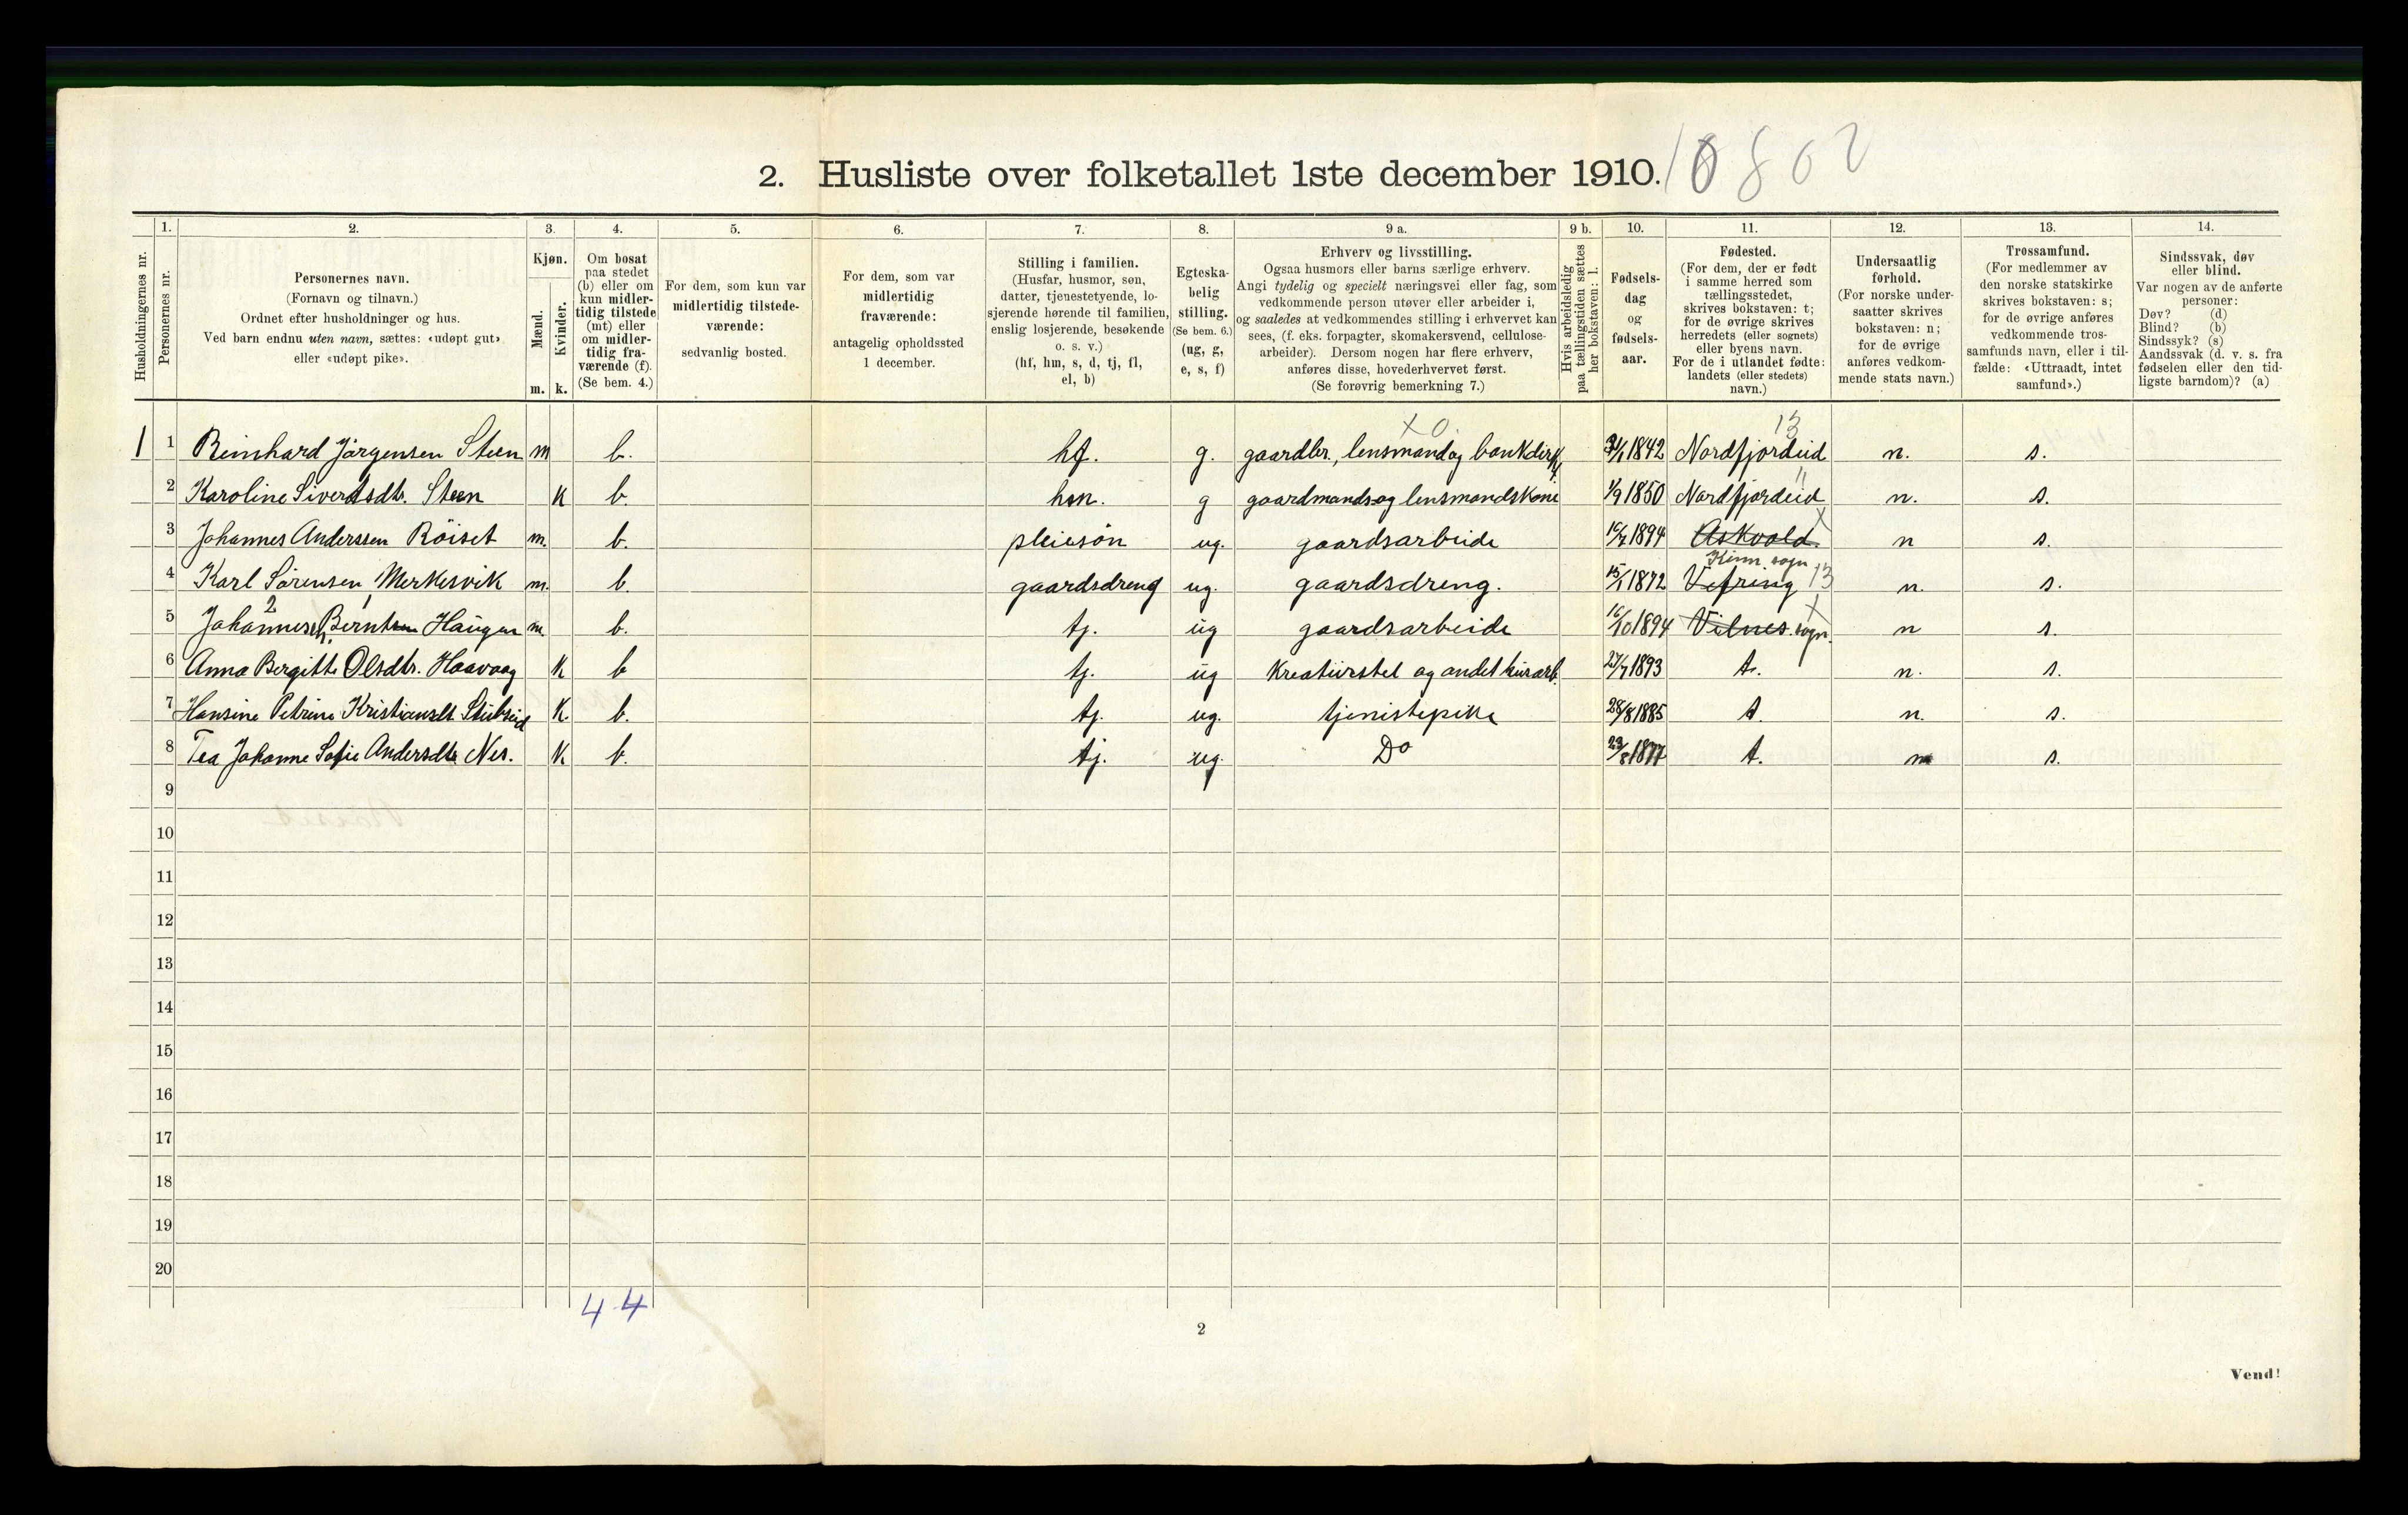 2. Husliste over folketallet 1ste december 1910. 10802
Husholdningernes nr.
1.
Personernes nr.
2.
Personernes navn.
(Fornavn og tilnavn.)
Ordnet efter husholdninger og hus.
Ved barn endnu uten navn, sættes: «udøpt gut»
eller «udøpt pike».
3.
Kjøn.
Mænd.
Kvinder.
m. k.
4.
Om bosat
paa stedet
(b) eller om
kun midler-
tidig tilstede
(mt) eller
om midler-
tidig fra-
værende (f).
(Se bem. 4.)
5.
For dem, som kun var
midlertidig tilstede-
værende:
sedvanlig bosted.
6.
For dem, som var
midlertidig
fraværende:
antagelig opholdssted
1 december.
7.
Stilling i familien.
(Husfar, husmor, søn,
datter, tjenestetyende, lo-
sjerende hørende til familien,
enslig losjerende, besøkende
o. s. v.)
(hf, hm, s, d, tj, fl,
el, b)
8.
Egteska-
belig
stilling.
(Se bem. 6.)
(ug, g,
e, s, f)
9 a.
Erhverv og livsstilling.
Ogsaa husmors eller barns særlige erhverv.
Angi tydelig og specielt næringsvei eller fag, som
vedkommende person utøver eller arbeider i,
og saaledes at vedkommendes stilling i erhvervet kan
sees, (f. eks. forpagter, skomakersvend, cellulose-
arbeider). Dersom nogen har flere erhverv,
anføres disse, hovederhvervet først.
(Se forøvrig bemerkning 7.)
9 b.
Hvis arbeidsledig
paa tællingstiden sættes
her bokstaven: l.
10.
Fødsels-
dag
og
fødsels-
aar.
11.
Fødested.
(For dem, der er født
i samme herred som
tællingsstedet,
skrives bokstaven: t;
for de øvrige skrives
herredets (eller sognets)
eller byens navn.
For de i utlandet fødte:
landets (eller stedets)
navn.)
12.
Undersaatlig
forhold.
(For norske under-
saatter skrives
bokstaven: n;
for de øvrige
anføres vedkom-
mende stats navn.)
13.
Trossamfund.
(For medlemmer av
den norske statskirke
skrives bokstaven: s;
for de øvrige anføres
vedkommende tros-
samfunds navn, eller i til-
fælde: «Uttraadt, intet
samfund».)
14.
Sindssvak, døv
eller blind.
Var nogen av de anførte
personer:
Døv? (d)
Blind? (b)
Sindssyk? (s)
Aandssvak (d. v. s. fra
fødselen eller den tid-
ligste barndom)? (a)
x 0. 13
1 1 Reinhard Jørgensen Steen m b. hf. g. gaardbr., lensmand og bankdirk. 1842 Nordfjordeid n. s.
11
2 Karoline Siverdsdtr. Steen k b. hm. g gaardmands og lensmandskone 1/9 1850 Nordfjordeid n. s.
3 Johannes Anderssen Röiset m. b. pleiesön ug. gaardsarbeide 1894 Askvold. x n s.
Kinn sogn
4 Karl Sørensen Merkesvik m. b. gaardsdreng ug. gaardsdreng. 15/1 1872 Vefring 13 n. s.
2 1
5 Johannes Berntsen Haugen m b. tj. ug gaardsarbeide 16/10 1894 Vilnes sogn. x n s.
6 Anna Bergitte Olsdtr. Haavaag k b tj. ug Kreaturstel og andet husarb. 27/7 1893 t. n. s.
7 Hansine Petrine Kristiansdt. Stubseid k. b. tj. ug. tjenistepike 28/8 1885 t. n. s.
8 Tea Johanne Sofie Andersdtr Nes. k b. tj. ug. Do 23/8 1877 t. n s.
9
10
11
12
13
14
15
16
17
18
19
20
4 4
2
Vend!